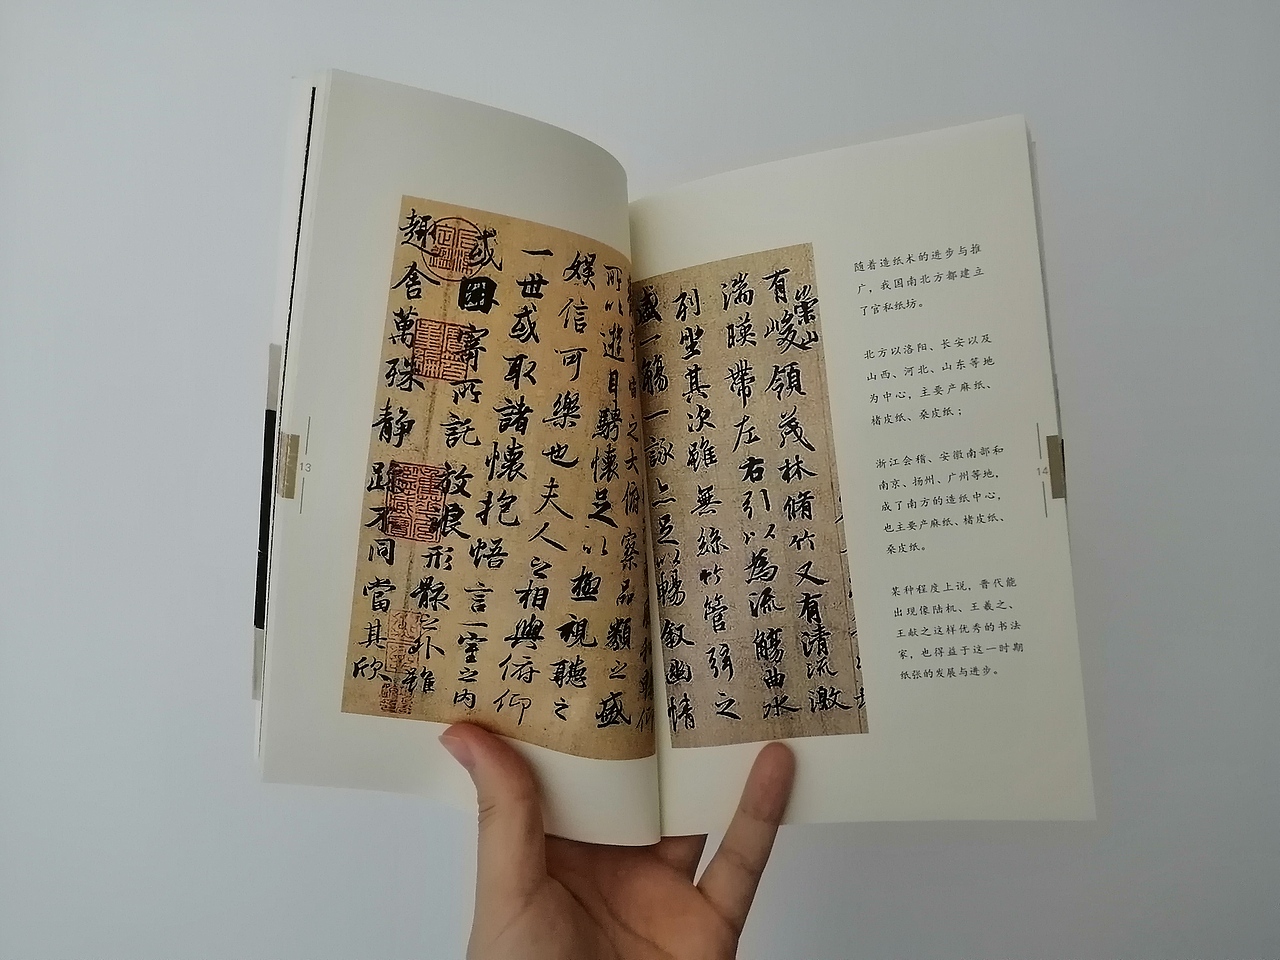 宙之大俯察品類之盛
所以遊目騁懷足以極視聽之
娛信可樂也夫人之相與俯仰
一世或取諸懷抱悟言一室之內
或因寄所託放浪形骸之外雖
趣舍萬殊静躁不同當其欣
13
有崇山峻領茂林脩竹又有清流激
湍暎帶左右引以為流觴曲水
列坐其次雖無絲竹管弦之
盛一觴一詠亦足以暢叙幽情
随着造纸术的进步与推
广，我国南北方都建立
了官私纸坊。
北方以洛阳、长安以及
山西、河北、山东等地
为中心，主要产麻纸、
楮皮纸、桑皮纸；
浙江会稽、安徽南部和
南京、扬州、广州等地，
成了南方的造纸中心，
也主要产麻纸、楮皮纸、
桑皮纸。
某种程度上说，晋代能
出现像陆机、王羲之、
王献之这样优秀的书法
家，也得益于这一时期
纸张的发展与进步。
14